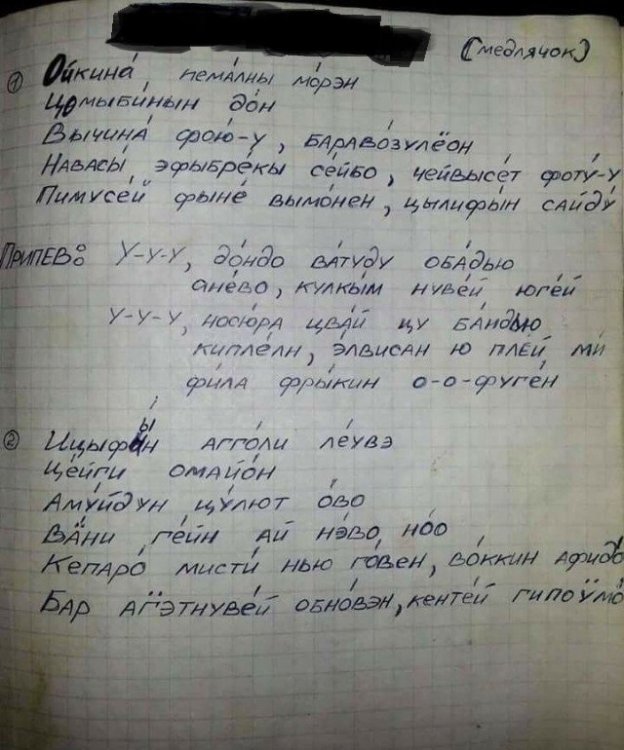 (медлячок)
① Ойкина́, пема́лны мо́рэн
Цомыби́нын до́н
Вычина́ фою́-у, барава́зулёон
Навасы́ эфыбре́кы се́йбо, чейвысе́т фоту́-у
Пимусе́й фыне́ вымо́нен, цылифы́н сайду́
Припев: У-у-у, до́ндо ва́туду оба́дью
ане́во, кулкы́м нуве́й юге́й
У-у-у, носю́ра цва́й цу ба́ндью
кипле́лн, э́лвисан ю плей ми́
фи́ла фры́кин о-о-фуге́н
② Ицыфы́н агго́ли ле́увэ
Це́йги омайо́н
Аму́йдун цу́лют о́во
Ва́ни ге́йн ай нэ́во, но́о
Кепаро́ мисти́ нью го́вен, во́ккин афидо́
Бар агэтнуве́й обно́вэн, кенте́й гипоумо́